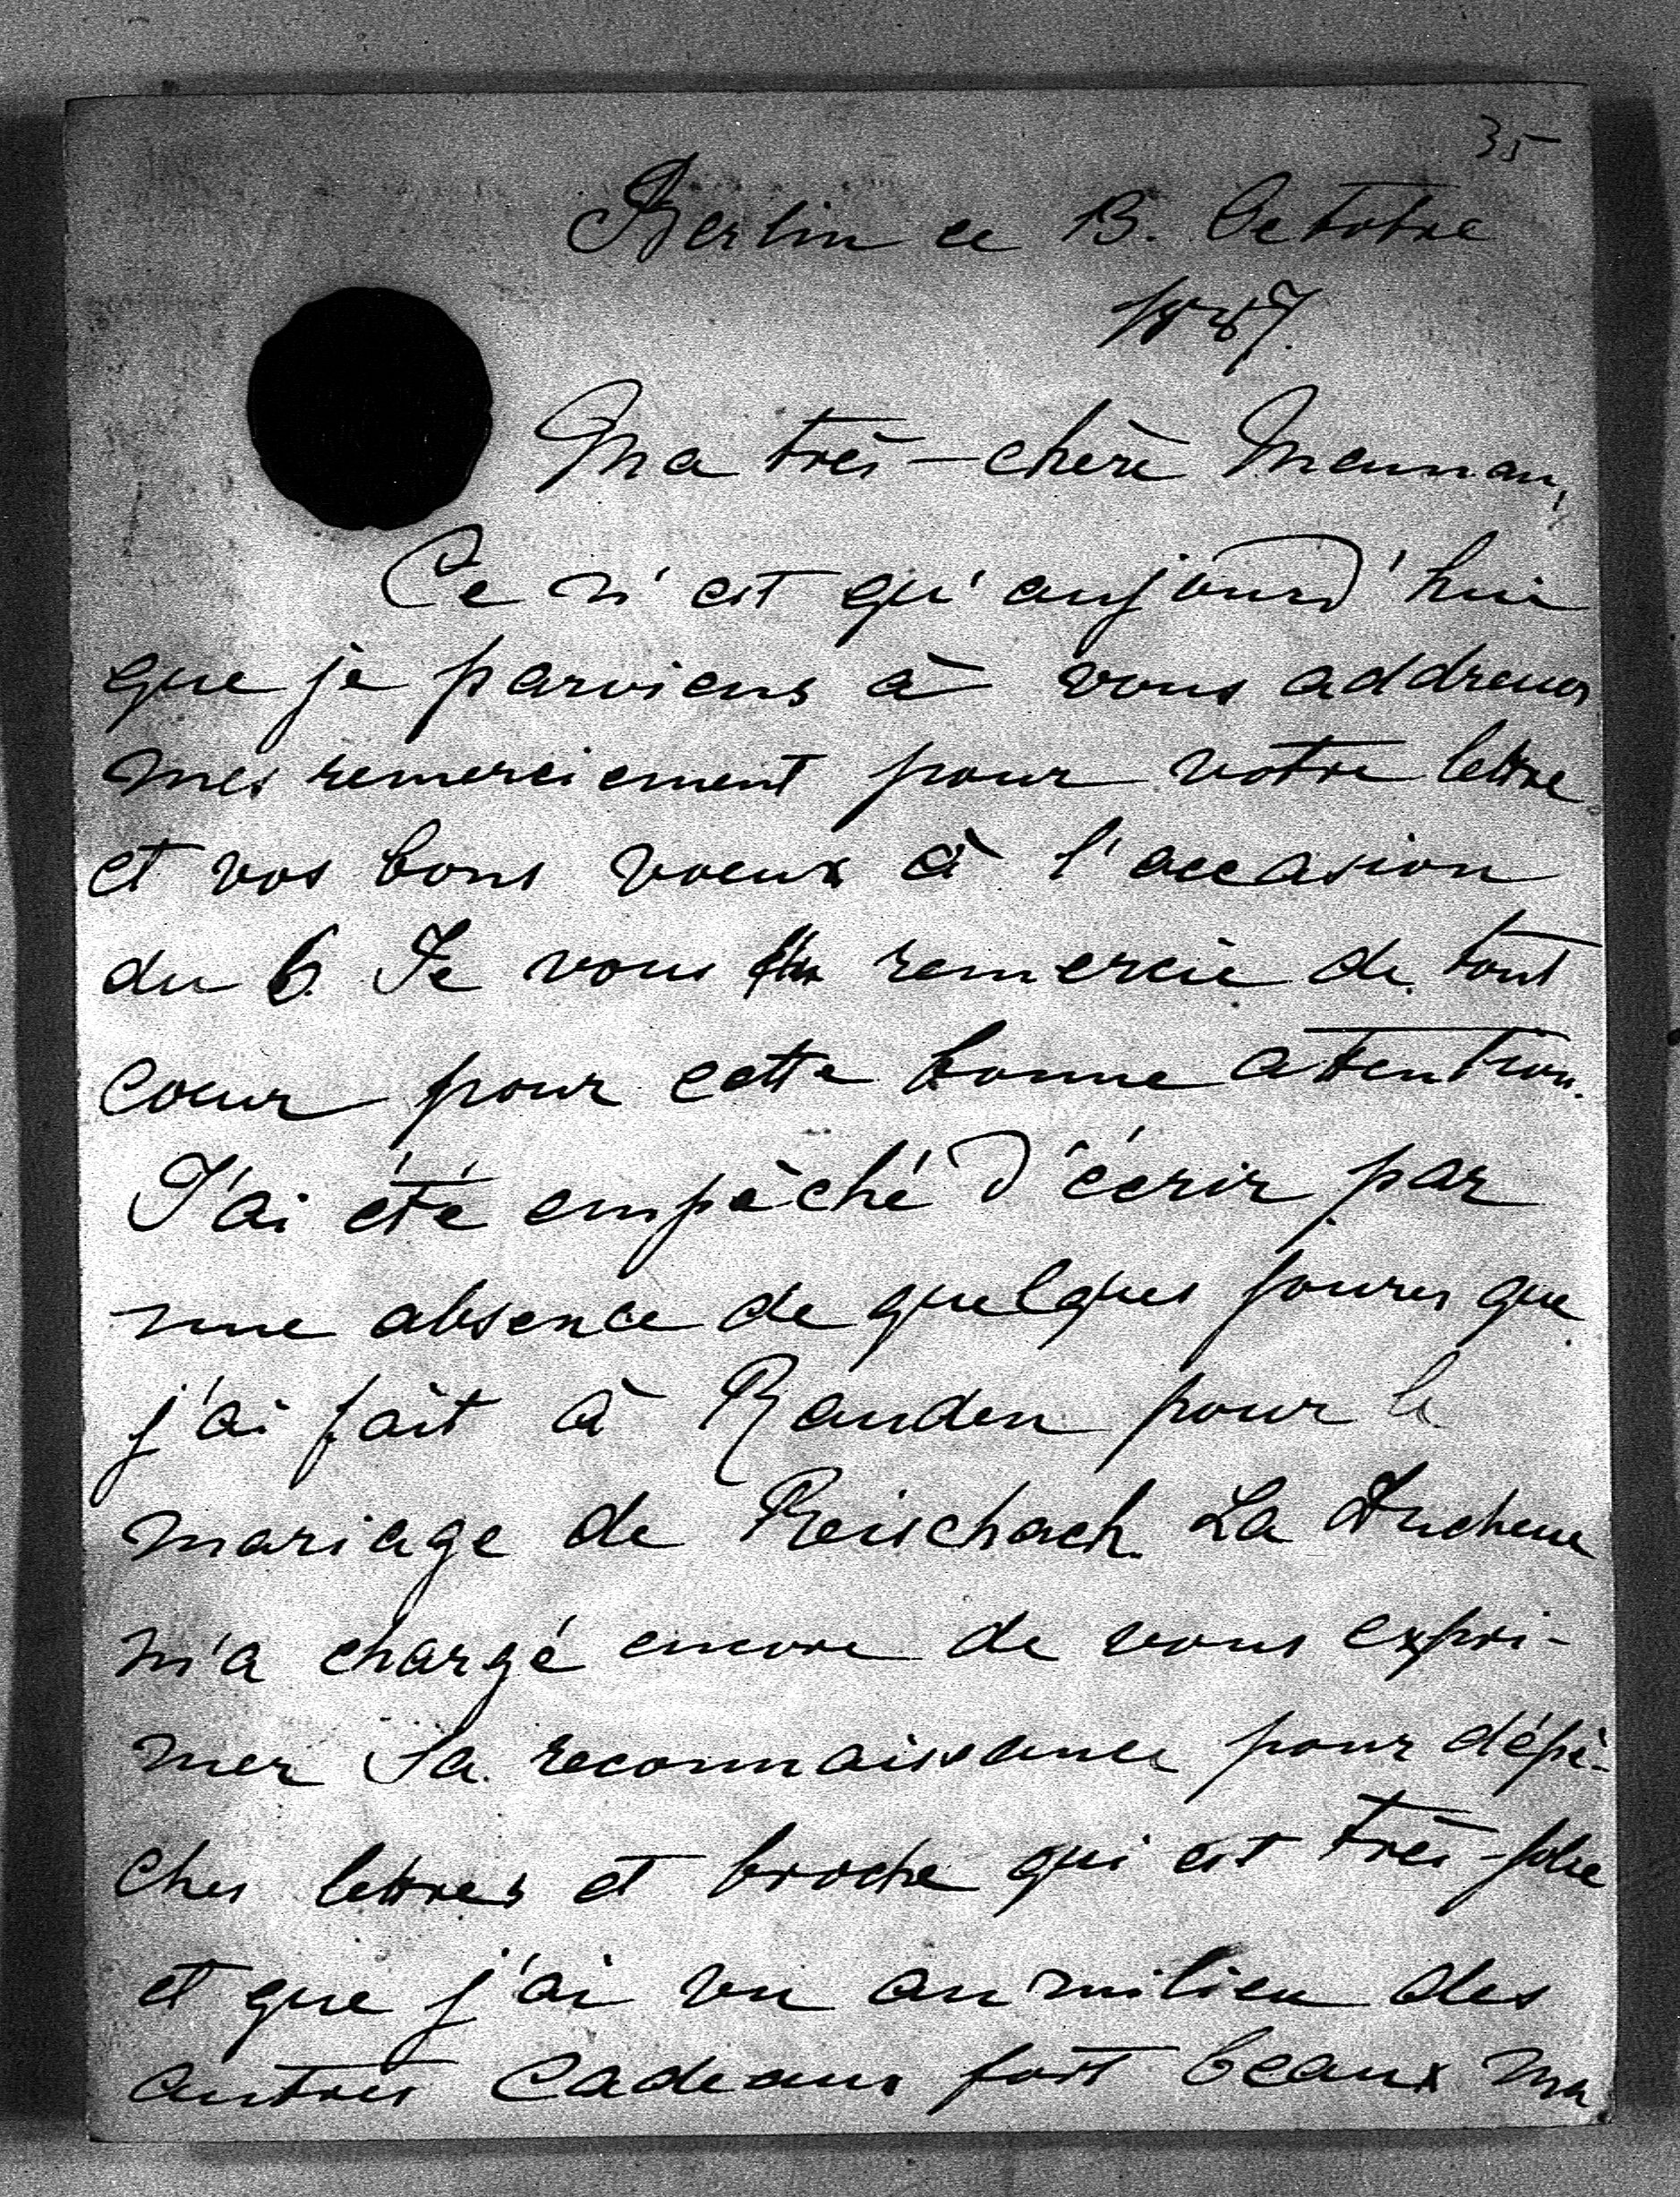 35
Berlin ce 13. Octobre
1887.
Ma très-chère Maman,
Ce n'est qu'aujourd'hui
que je parviens à vous addresser
mes remerciement pour votre lettre
et vos bons voeux à l'occasion
du 6. Je vous remercie de tout
coeur pour cette bonne attention.
J'ai été empêché d'écrir par
une absence de quelques jours que
j'ai fait à Rauden pour le
mariage de Reischach. La Duchesse
m'a chargé encore de vous expri-
mer Sa reconnaissance pour dépê-
ches lettres et broche qui est très-jolie
et que j'ai vu au milieu des
autres cadeaux fort beaux ma